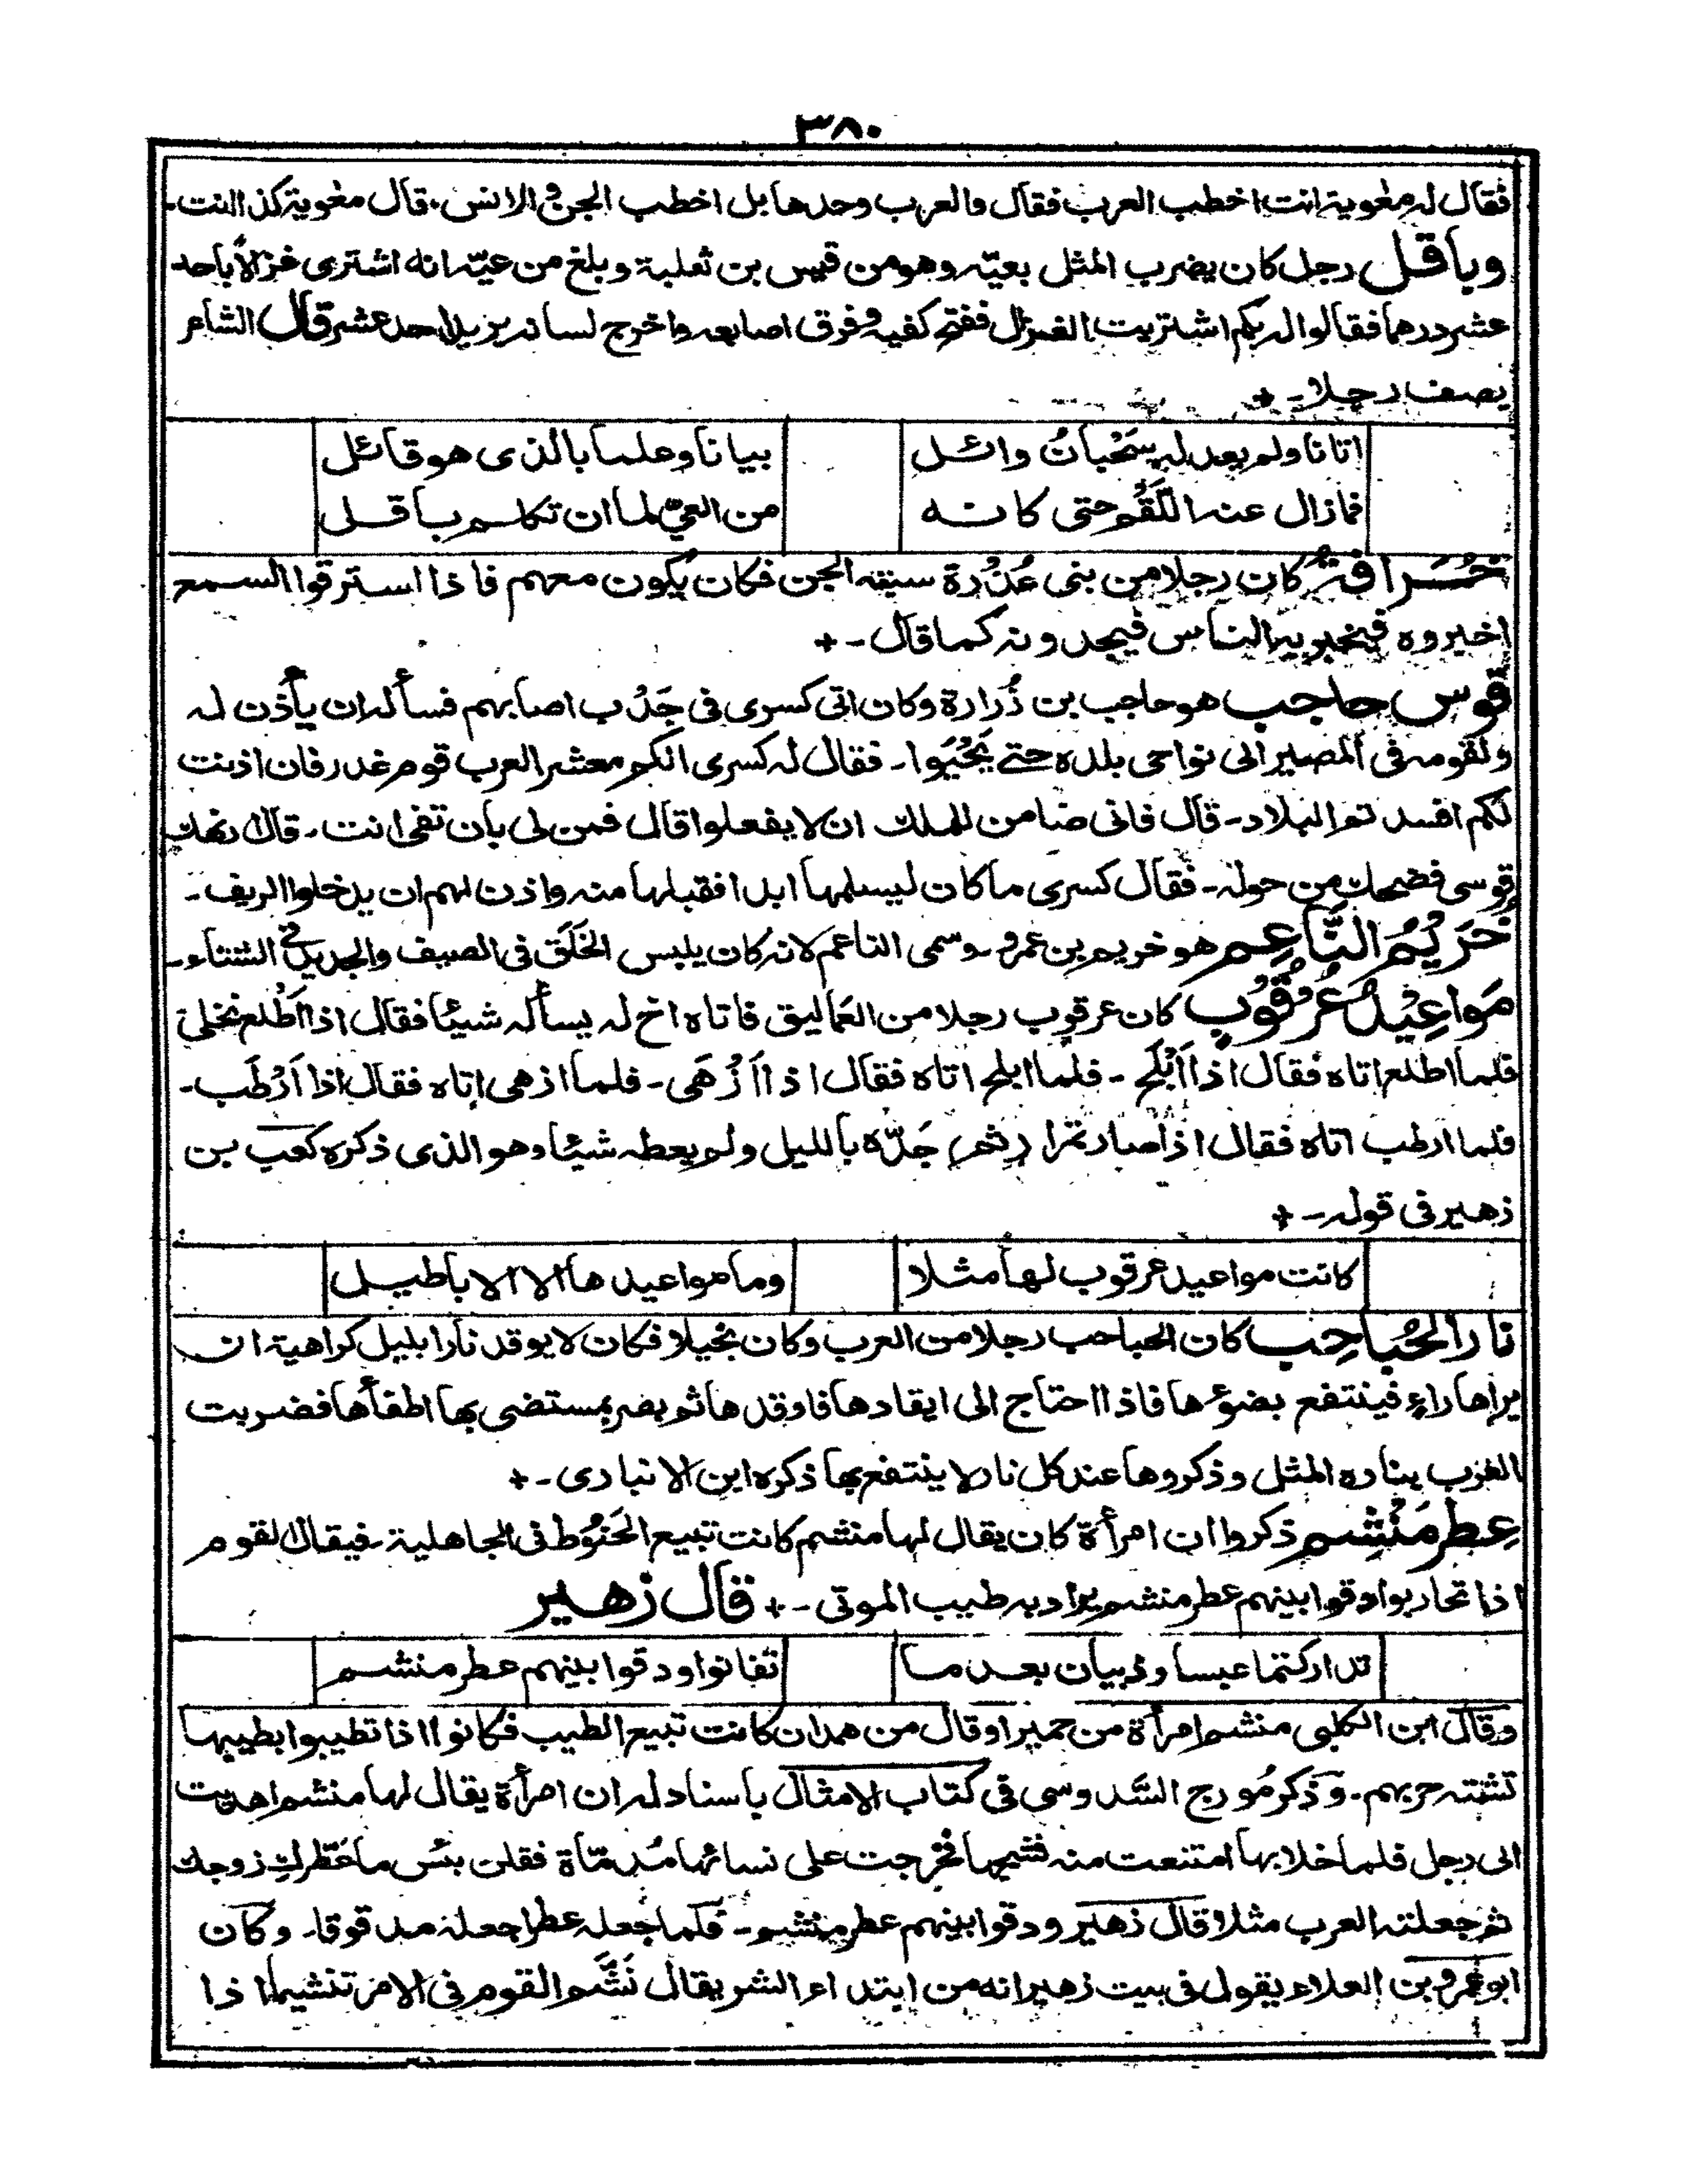 ٣٨٠
فقال له معٰوية انت اخطب العرب فقال والعرب وحدها بل اخطب الجن والانس۔ قال معٰوية كذا انت۔
وباقل رجل كان يضرب المثل بعيّه وهو من قيس بن ثعلبة وبلغ من عيّه انه اشترى غزالا باحد
عشر درهما فقالوا له بكم اشتريت الغزال ففتح كفيه وفرق اصابعه واخرج لسانه يريد احد عشر قال الشاعر
يصف رجلا۔ +
اتانا ولم يعدله سَحْبانُ وائل بيانا وعلما بالذى هو قائل
فما زال عنه اللَّقْم حتى كانه من العيّ لما ان تكلم باقل
خُرافةُ كان رجلا من بنى عُذْرة سبته الجن فكان يكون معهم فاذا استرقوا السمع
اخبروه فيخبر به الناس فيجدونه كما قال۔ +
قوس حاجب هو حاجب بن زُرارة وكان اتى كسرى فى جَدْب اصابهم فسأله ان يأذن له
ولقومه فى المصير الى نواحى بلده حتى يَحْيَوا۔ فقال له كسرى انكم معشر العرب قوم غدر فان اذنت
لكم افسدتم البلاد۔ قال فانى ضامن للملك ان لا يفعلوا قال فمن لى بان تفى انت۔ قال ارهنك
قوسى فضحك من حوله۔ فقال كسرى ما كان ليسلمها ابدا فقبلها منه واذن لهم ان يدخلوا الريف۔
خُرَيْمُ النَّاعِم هو خريم بن عمرو۔ وسمى الناعم لانه كان يلبس الخَلَق فى الصيف والجديد فى الشتاء۔
مَواعِيْدُ عُرْقُوْبٍ كان عرقوب رجلا من العماليق فاتاه اخ له يسأله شيئا فقال اذا اَطْلع نخلى
فلما اطلع اتاه فقال اذا اَبْلَح۔ فلما ابلح اتاه فقال اذا اَزْهَى۔ فلما ازهى اتاه فقال اذا اَرْطَب۔
فلما ارطب اتاه فقال اذا صار تمرا (ثم) جَدّه بالليل ولم يعطه شيئا وهو الذى ذكره كعب بن
زهير فى قوله۔ +
كانت مواعيد عرقوب لها مثلا وما مواعيدها الا الاباطيل
نار الحُباحِب كان الحباحب رجلا من العرب وكان بخيلا فكان لا يوقد نارا بليل كراهية ان
يراها راءٍ فينتفع بضوءها فاذا احتاج الى ايقادها فاوقدها ثم بصر بمستضى بها اطفأها فضربت
العرب بناره المثل وذكروها عند كل نار لا ينتفع بها ذكره ابن الانبارى۔ +
عِطر مَنْشِم ذكروا ان امرأة كان يقال لها منشم كانت تبيع الحَنُوْط فى الجاهلية۔ فيقال لقوم
اذا تحاربوا دقوا بينهم عطر منشم يراد به طيب الموتى۔ + قال زهير
تداركتما عبسا وذبيان بعد ما تفانوا ودقوا بينهم عطر منشم
وقال ابن الكلبى منشم امرأة من حمير او قال من همدان كانت تبيع الطيب فكانوا اذا تطيبوا بطيبها
تشتد حربهم۔ وذكر مُورج السَّدوسى فى كتاب الامثال باسناد له ان امرأة يقال لها منشم اهديت
الى رجل فلما خلا بها امتنعت منه فشجها فخرجت على نسائها مُدمّاة فقلن بئس ما عَطّركِ زوجك
ثم جعلته العرب مثلا قال زهير ودقوا بينهم عطر منشم۔ فلما جعله عطرا جعله مدقوقا۔ وكان
ابو عمرو بن العلاء يقول فى بيت زهير انه من ابتداء الشر يقال نَشَّم القوم فى الامر تنشيما اذا